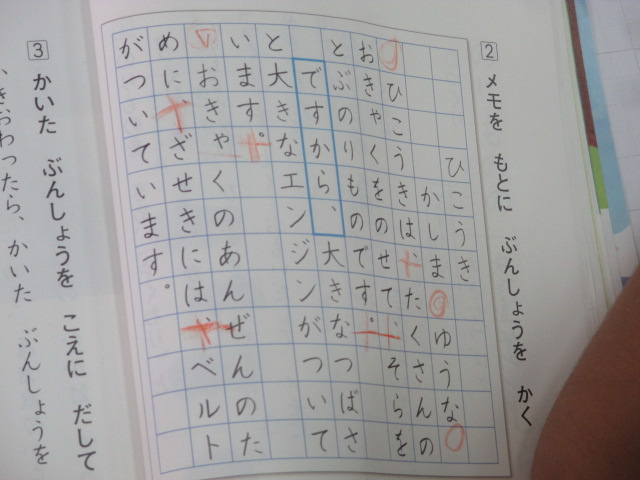 2 メモを もとに ぶんしょうを かく
ひこうき
かしま ゆうな
ひこうきは、たくさんの
おきゃくをのせて、そらを
とぶのりものです。
ですから、大きなつばさ
と大きなエンジンがついて
います。
おきゃくのあんぜんのた
めに、ざせきには、ベルト
がついています。
3 かいた ぶんしょうを こえに だして
きおわったら、かいた ぶんしょうを